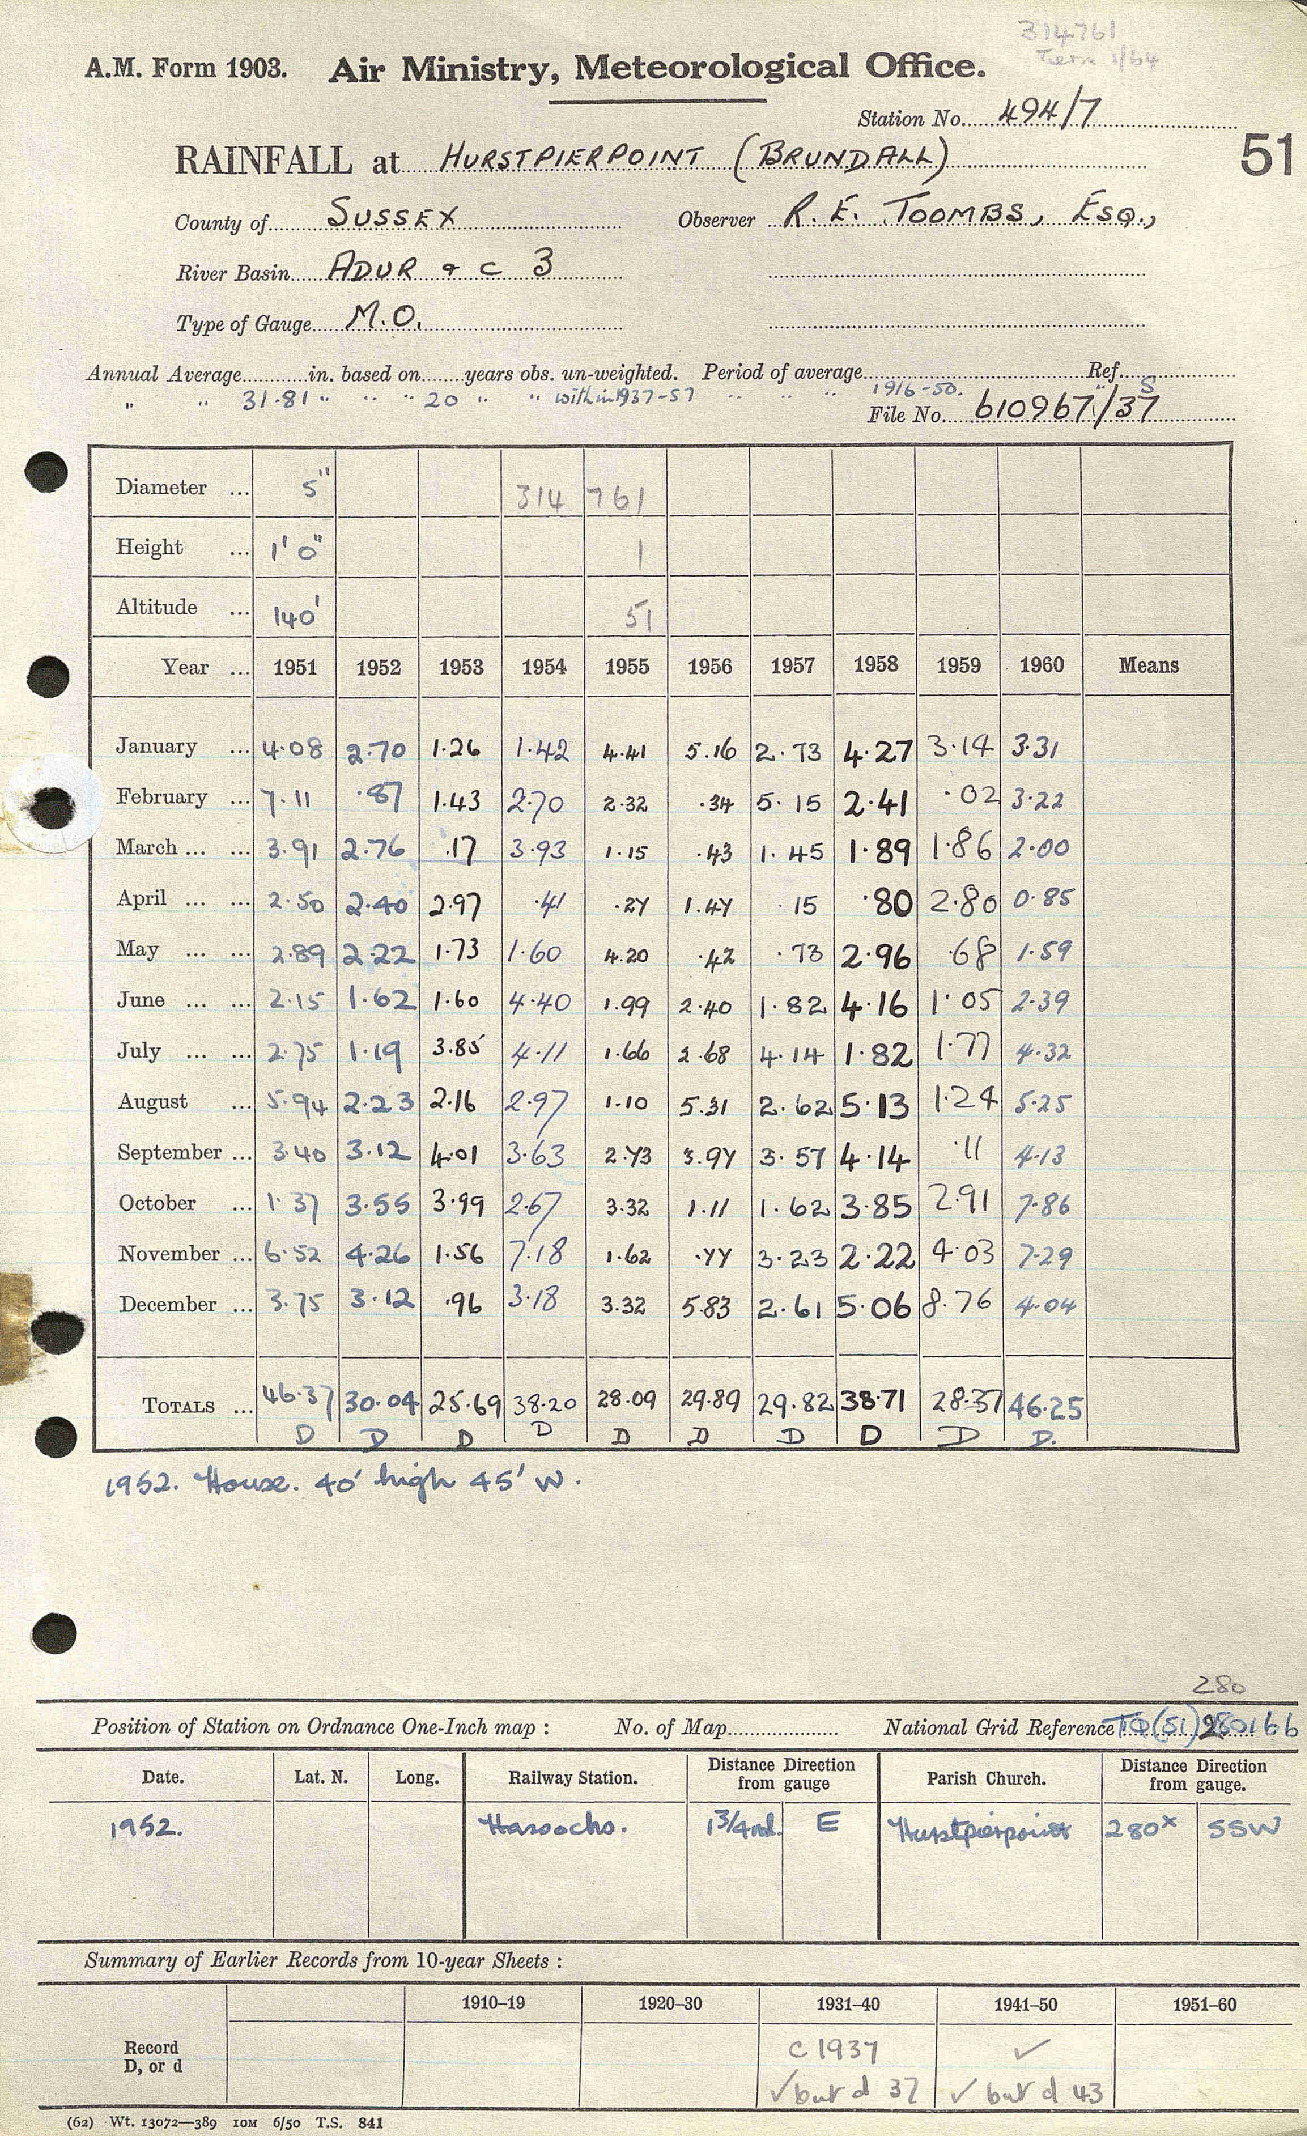 314761
A.M. Form 1903. Air Ministry, Meteorological Office.
Station No. 494/7
51
RAINFALL at HURSTPIERPOINT (BRUNDALL)
County of SUSSEX Observer R. E. TOOMBS, ESQ.,
River Basin ADUR & C 3
Type of Gauge M.O.
Annual Average in. based on years obs. un-weighted. Period of average Ref.
" " 31.81 " " " 20 " " within 1937-57 " " " 1916-50. " S
File No. 610967/37
Diameter ... 5" 314 761
Height ... 1' 0" 1
Altitude ... 140' 51
Year ... 1951 1952 1953 1954 1955 1956 1957 1958 1959 1960 Means
January ... 4.08 2.70 1.26 1.42 4.41 5.16 2.73 4.27 3.14 3.31
February ... 7.11 .87 1.43 2.70 2.32 .34 5.15 2.41 .02 3.22
March ... ... 3.91 2.76 .17 3.93 1.15 .43 1.45 1.89 1.86 2.00
April ... ... 2.50 2.40 2.97 .41 .27 1.47 15 .80 2.80 0.85
May ... ... 2.89 2.22 1.73 1.60 4.20 .42 .73 2.96 .68 1.59
June ... ... 2.15 1.62 1.60 4.40 1.99 2.40 1.82 4.16 1.05 2.39
July ... ... 2.75 1.19 3.85 4.11 1.66 2.68 4.14 1.82 1.77 4.32
August ... 5.94 2.23 2.16 2.97 1.10 5.31 2.62 5.13 1.24 5.25
September ... 3.40 3.12 4.01 3.63 2.73 3.97 3.57 4.14 .11 4.13
October ... 1.37 3.55 3.99 2.67 3.32 1.11 1.62 3.85 2.91 7.86
November ... 6.52 4.26 1.56 7.18 1.62 .77 3.23 2.22 4.03 7.29
December ... 3.75 3.12 .96 3.18 3.32 5.83 2.61 5.06 8.76 4.04
TOTALS ... 46.37 30.04 25.69 38.20 28.09 29.89 29.82 38.71 28.37 46.25
D D D D D D D D D D.
1952. House. 40' high 45' W.
280
Position of Station on Ordnance One-Inch map : No. of Map National Grid Reference TQ(51) 280166
Date. Lat. N. Long. Railway Station. Distance Direction from gauge Parish Church. Distance Direction from gauge.
1952. Hassocks. 1 3/4 ml. E Hurstpierpoint 280x SSW
Summary of Earlier Records from 10-year Sheets :
1910–19 1920–30 1931–40 1941–50 1951–60
Record D, or d
c 1937 ✓
✓ but d 37 ✓ but d 43
(62) Wt. 13072—389 10M 6/50 T.S. 841